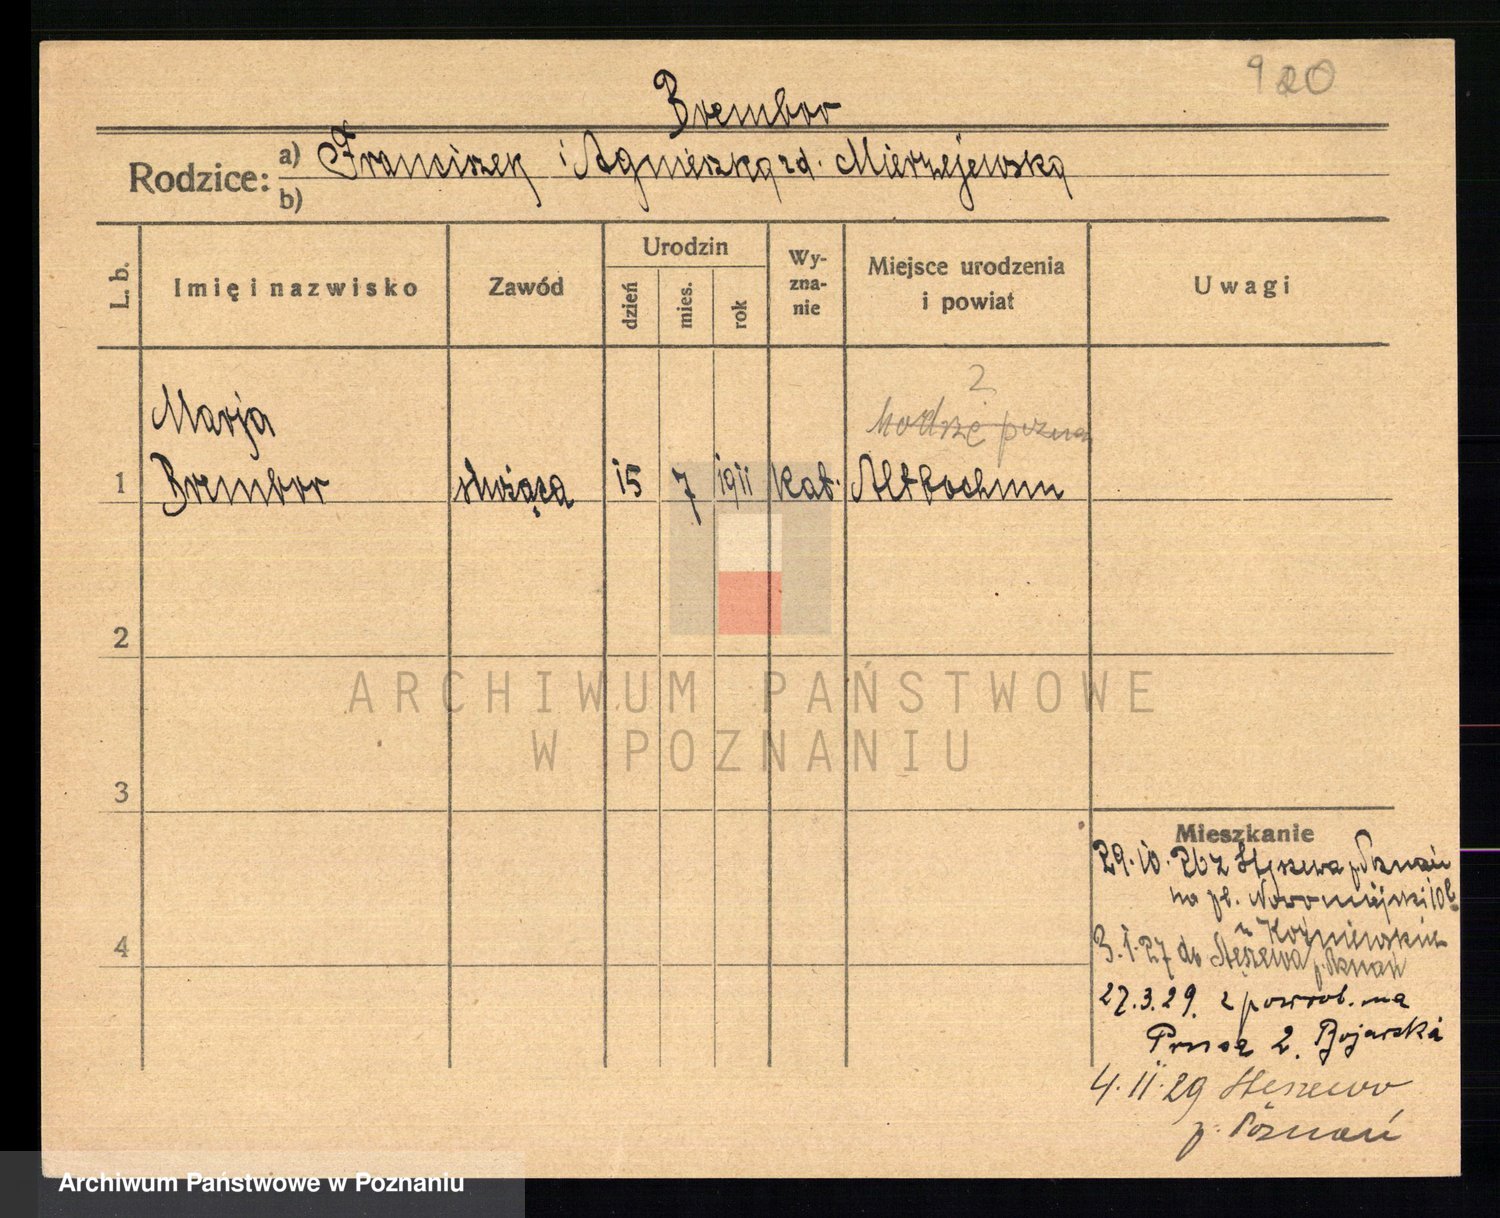 920
Brembor
Rodzice:
a) Franciszek i Agnieszka zd. Mierzejewska
b)
L. b.
Imię i nazwisko
Zawód
Urodzin
dzień
mies.
rok
Wy-
zna-
nie
Miejsce urodzenia
i powiat
Uwagi
2
Marja
1 Brembor służąca 15 7 1911 kat. Altbochum
2
3
4
ARCHIWUM PAŃSTWOWE
W POZNANIU
Mieszkanie
29.10.26 z Stęszewa p. Poznań
na pl. Nowomiejski 10b
z Koźmiewskich
3.1.27 do Stęszewa p. Poznań
27.3.29. z powrot. na
2. Bojarska
4.11.29 Stęszewo
p. Poznań
Archiwum Państwowe w Poznaniu